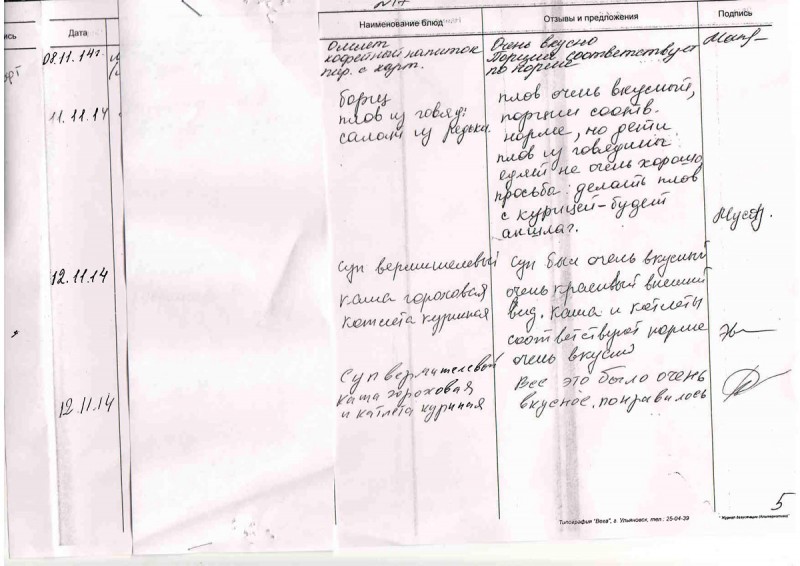 №17
ись
Дата
Наименование блюд
Отзывы и предложения
Подпись
08.11.14г
Омлет
кофейный напиток
пир. с карт.
Очень вкусно
Порции соответствует
по норме
11.11.14
борщ
плов из говяд:
салат из редьки.
плов очень вкусный,
порции соотв.
норме, но дети
плов из говядины
едят не очень хорошо
просьба: делать плов
с курицей-будет
аншлаг.
12.11.14
суп вермишелевый
каша гороховая
котлета куриная
суп был очень вкусный
очень красивый внешний
вид. Каша и котлеты
соответствуют норме
очень вкусно
12.11.14
Суп вермишелевой
каша гороховая
и катлета куриная
Все это было очень
вкусное. понравилось
5
Типография "Веха", г. Ульяновск, тел.: 25-04-39